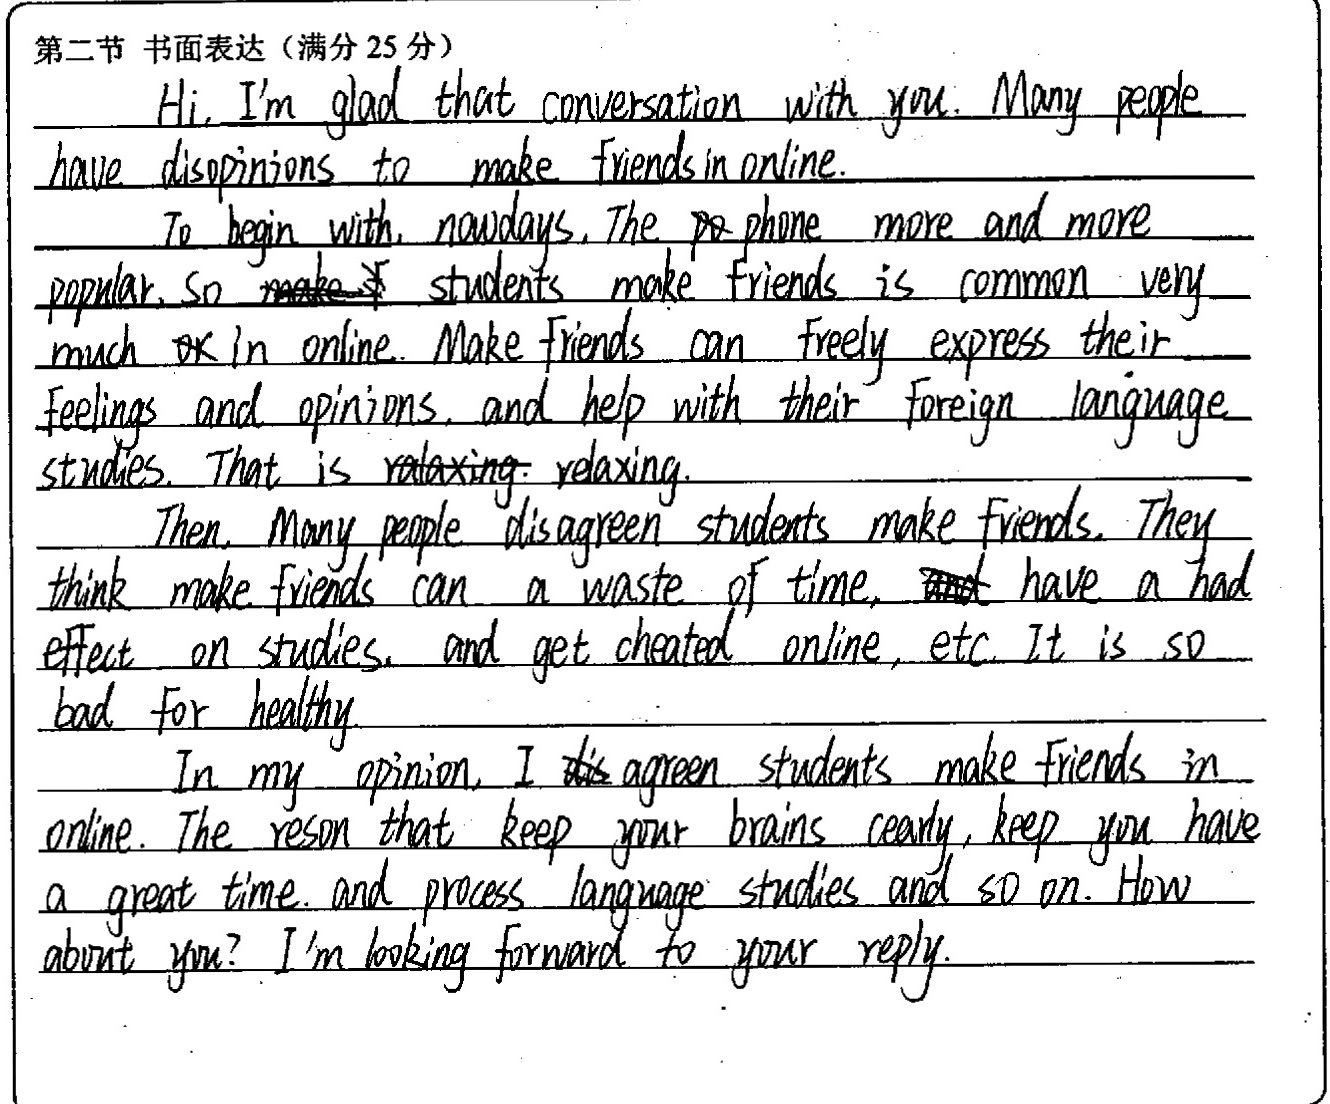 第二节 书面表达（满分 25 分）
Hi, I'm glad that conversation with you. Many people
have disopinions to make friends in online.
To begin with, nowdays, The phone more and more
popular. So students make friends is common very
much in online. Make friends can freely express their
feelings and opinions, and help with their foreign language
studies. That is relaxing.
Then, Many people disagreen students make friends. They
think make friends can a waste of time, have a had
effect on studies, and get cheated online, etc. It is so
bad for healthy.
In my opinion, I agreen students make friends in
online. The reson that keep your brains cearly, keep you have
a great time. and process language studies and so on. How
about you? I'm looking forward to your reply.